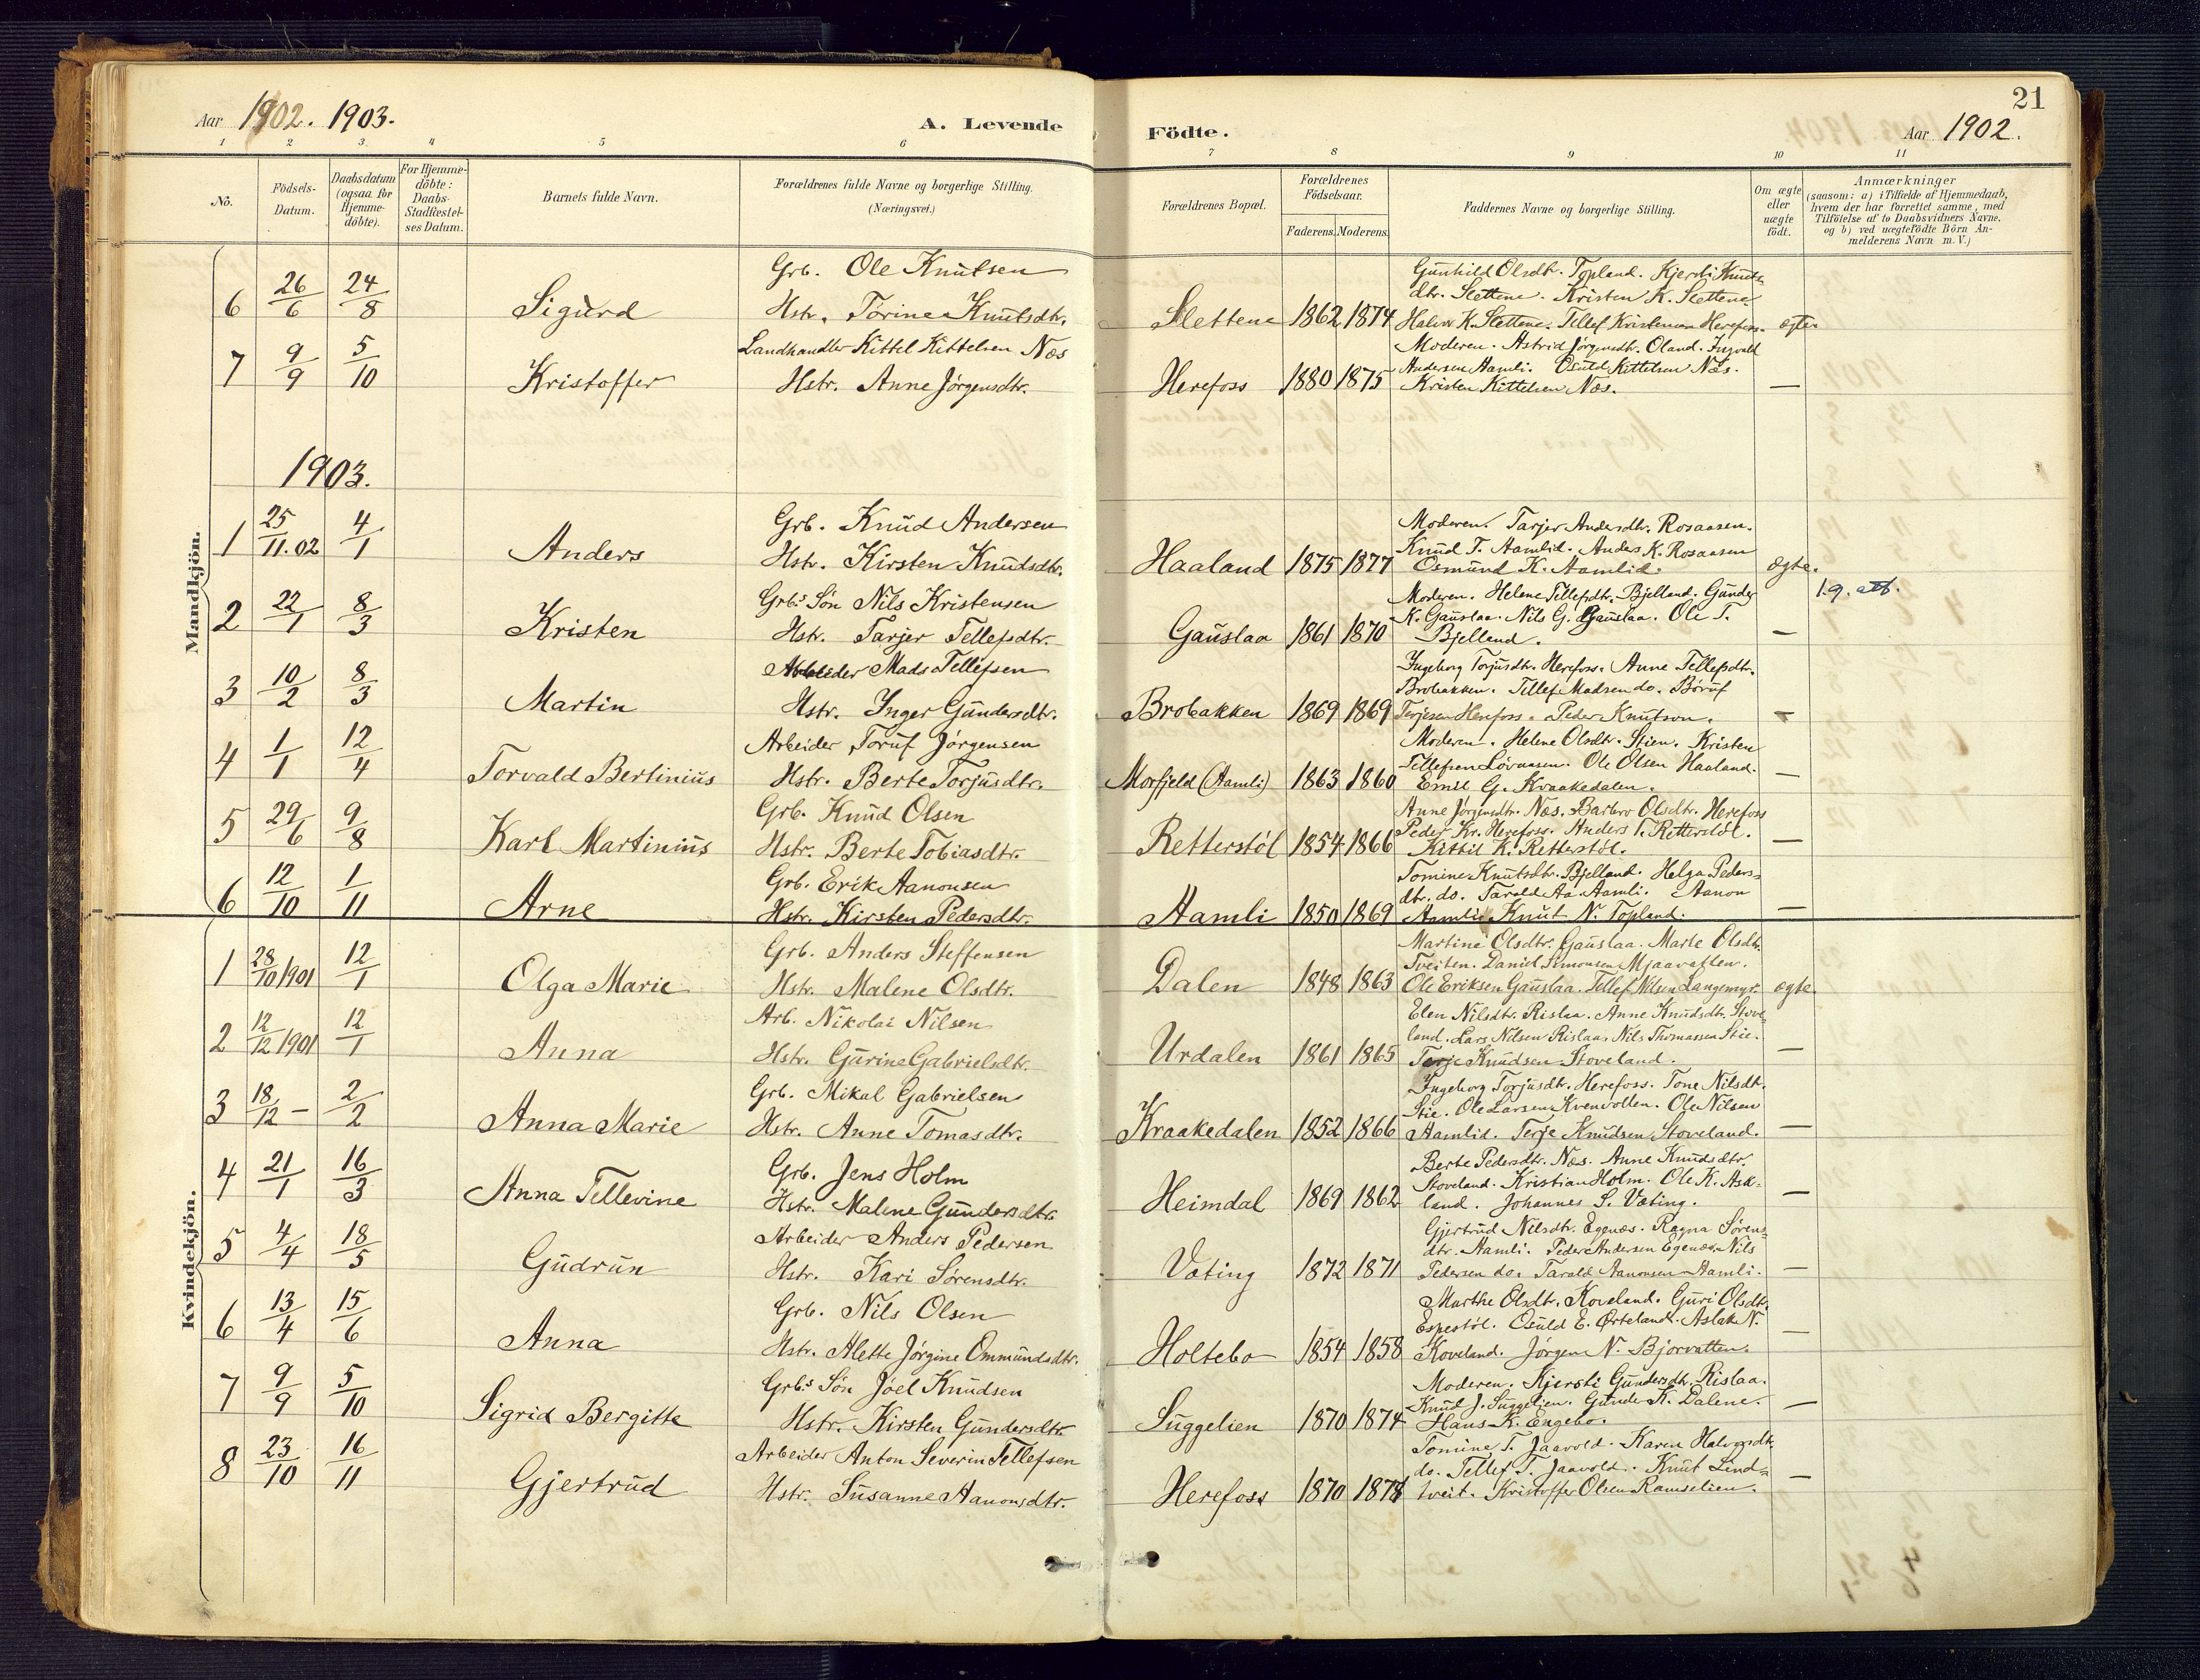 21
Aar 1902. 1903.
A. Levende
Födte.
Aar 1902.
1 2 3 4 5 6 7 8 9 10 11
No.
Födsels-Datum.
Daabsdatum (ogsaa for Hjemme-döbte).
For Hjemme-döbte: Daabs-Stadfæstel-ses Datum.
Barnets fulde Navn.
Forældrenes fulde Navne og borgerlige Stilling. (Næringsvei.)
Forældrenes Bopæl.
Forældrenes Födselsaar.
Faderens. Moderens.
Faddernes Navne og borgerlige Stilling.
Om ægte eller uægte födt.
Anmærkninger
(saasom: a) i Tilfælde af Hjemmedaab,
hvem der har forrettet samme, med
Tilföielse af to Daabsvidners Navne,
og b) ved uægtefödte Börn An-
melderens Navn m. V.)
Mandkjön.
6 26/6 24/8 Sigurd
Grb. Ole Knutsen
Hstr. Torine Knutsdtr.
Slettene 1862 1874
Gunhild Olsdtr. Topland. Kjersti Knuts-
dtr. Slettene. Kristen K. Slettene
Halvor K. Slettene. Tellef Kristensen Herefoss.
ægte
7 9/9 5/10 Kristoffer
Landhandler Kittel Kittelsen Næs
Hstr. Anne Jörgensdtr.
Herefoss 1880 1875
Moderen. Astrid Jörgensdtr. Oland. Ingvald
Andersen Aamli. Osuld Kittelsen Næs.
Kristen Kittelsen Næs.
—
1903.
1 25/11.02 4/1 Anders
Grb. Knud Andersen
Hstr. Kirsten Knudsdtr.
Haaland 1875 1877
Moderen. Tarjer Andersdtr. Rosaasen.
Knud T. Aamlid. Anders K. Rosaasen
Osmund K. Aamlid.
ægte.
1.9. att.
2 22/1 8/3 Kristen
Grbs Sön Nils Kristensen
Hstr. Tarjer Tellefsdtr.
Gauslaa 1861 1870
Moderen. Helene Tellefsdtr. Bjelland. Gunder
K. Gauslaa. Nils G. Gauslaa. Ole T.
Bjelland.
—
3 10/2 8/3 Martin
Arbeider Mads Tellefsen
Hstr. Inger Gundersdtr.
Brobakken 1869 1869
Ingeborg Torjusdtr. Herefoss. Anne Tellefsdtr.
Brobakken. Tellef Madsen do. Böruf
Terjesen Herefoss. Peder Knutson.
—
4 1/1 12/4 Torvald Bertinius
Arbeider Toruf Jörgensen
Hstr. Berte Torjusdtr.
Morfjeld (Aamli) 1863 1860
Moderen. Helene Olsdtr. Stien. Kristen
Tellefsen Lövaasen. Ole Olsen Haaland.
Emil G. Kraakedalen.
—
5 29/6 9/8 Karl Martinius
Grb. Knud Olsen
Hstr. Berte Tobiasdtr.
Retterstöl 1854 1866
Anne Jörgensdtr. Næs. Barbro Olsdtr. Herefoss
Peder Kr. Herefoss. Anders K. Retterstöl.
Kittil K. Retterstöl.
—
6 12/10 1/11 Arne
Grb. Erik Aanonsen
Hstr. Kirsten Pedersdtr.
Aamli 1850 1869
Tomine Knutsdtr. Bjelland. Helga Peders-
dtr. do. Tarald Aa. Aamli. Aanon
Aamli. Knut N. Topland.
—
Kvindekjön.
1 28/10 1901 12/1 Olga Marie
Grb. Anders Steffensen
Hstr. Malene Olsdtr.
Dalen 1848 1863
Martine Olsdtr. Gauslaa. Marte Olsdtr.
Tveiten. Daniel Simonsen Mjaavatten.
Ole Eriksen Gauslaa. Tellef Nilsen Langemyr.
ægte.
2 12/12 1901 12/1 Anna
Arb. Nikolai Nilsen
Hstr. Gurine Gabrielsdtr.
Urdalen 1861 1865
Elen Nilsdtr. Rislaa. Anne Knudsdtr. Stove-
land. Lars Nilsen Rislaa. Nils Thomassen Stie.
Terje Knudsen Stoveland.
—
3 18/12 — 2/2 Anna Marie
Grb. Mikal Gabrielsen
Hstr. Anne Tomasdtr.
Kraakedalen 1852 1866
Ingeborg Torjusdtr. Herefoss. Tone Nilsdtr.
Stie. Ole Larsen Kvenvolten. Ole Nilsen
Aamlid. Terje Knudsen Stoveland.
—
4 21/1 16/3 Anna Tellevine
Grb. Jens Holm
Hstr. Malene Gundersdtr.
Heimdal 1869 1862
Berte Pedersdtr. Næs. Anne Knudsdtr.
Stoveland. Kristian Holm. Ole K. Ask-
land. Johannes S. Væting.
—
5 4/4 18/5 Gudrun
Arbeider Anders Pedersen
Hstr. Kari Sörensdtr.
Væting 1872 1871
Gjertrud Nilsdtr. Egenæs. Ragna Sörens-
dtr. Aamli. Peder Andersen Egenæs. Nils
Pedersen do. Tarald Aanonsen Aamli.
—
6 13/4 15/6 Anna
Grb. Nils Olsen
Hstr. Alette Jörgine Ommundsdtr.
Holtebo 1854 1858
Marthe Olsdtr. Koveland. Guri Olsdtr.
Espestöl. Osuld E. Örteland. Aslak N.
Koveland. Jörgen N. Bjorvatten.
—
7 9/9 5/10 Sigrid Bergitte
Grbs Sön Jóel Knudsen
Hstr. Kirsten Gundersdtr.
Suggelien 1870 1874
Moderen. Kjersti Gundersdtr. Rislaa.
Knud J. Suggelien. Gunder K. Dalene.
Hans K. Engebo.
—
8 23/10 16/11 Gjertrud
Arbeider Anton Severin Tellefsen
Hstr. Susanne Aanonsdtr.
Herefoss 1870 1878
Tomine T. Jaavold. Karen Halvorsdtr.
do. Tellef T. Jaavold. Knut Lind-
tveit. Kristoffer Olsen Ramselien.
—